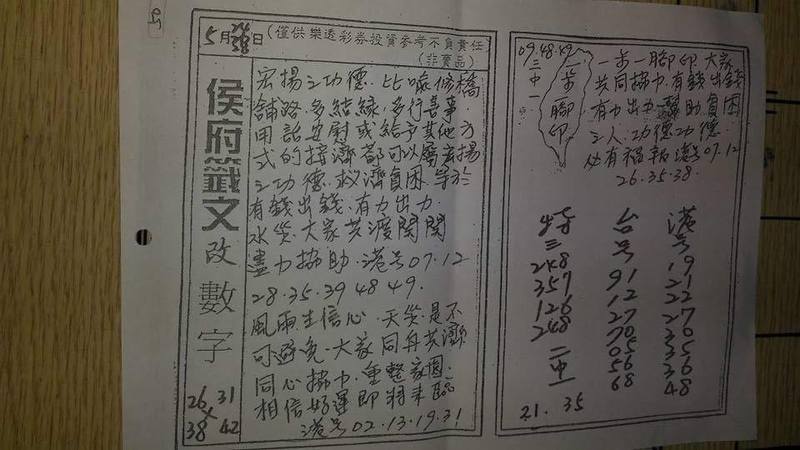 5月26日(僅供樂透彩券投資參考不負責任
(非賣品)
侯府籤文改數字
宏揚之功德.比喻修橋
舖路.多結緣.多行善事
用話安慰或給予其他方
式的接濟都可以屬宏揚
之功德.救濟貧困.等於
有錢出錢.有力出力.
水災.大家共渡關關
盡力協助.港号07.12
28.35.39 48 49.
風雨生信心.天災.是不
可避免.大家同舟共濟
同心協力.重整家園.
相信好運即將來臨
港号02.13.19.31
26 31
38 42
09.48.49
三中一
一步一腳印
一步一腳印.大家
共同協力.有錢出錢
有力出力.助貧困
之人.功德功德
必有福報港号07.12
26.35.38.
特三
248
357
126
248
二中一
台号
91
12
27
70
05
56
68
港号
19
21
22
27
35
36
48
21.35